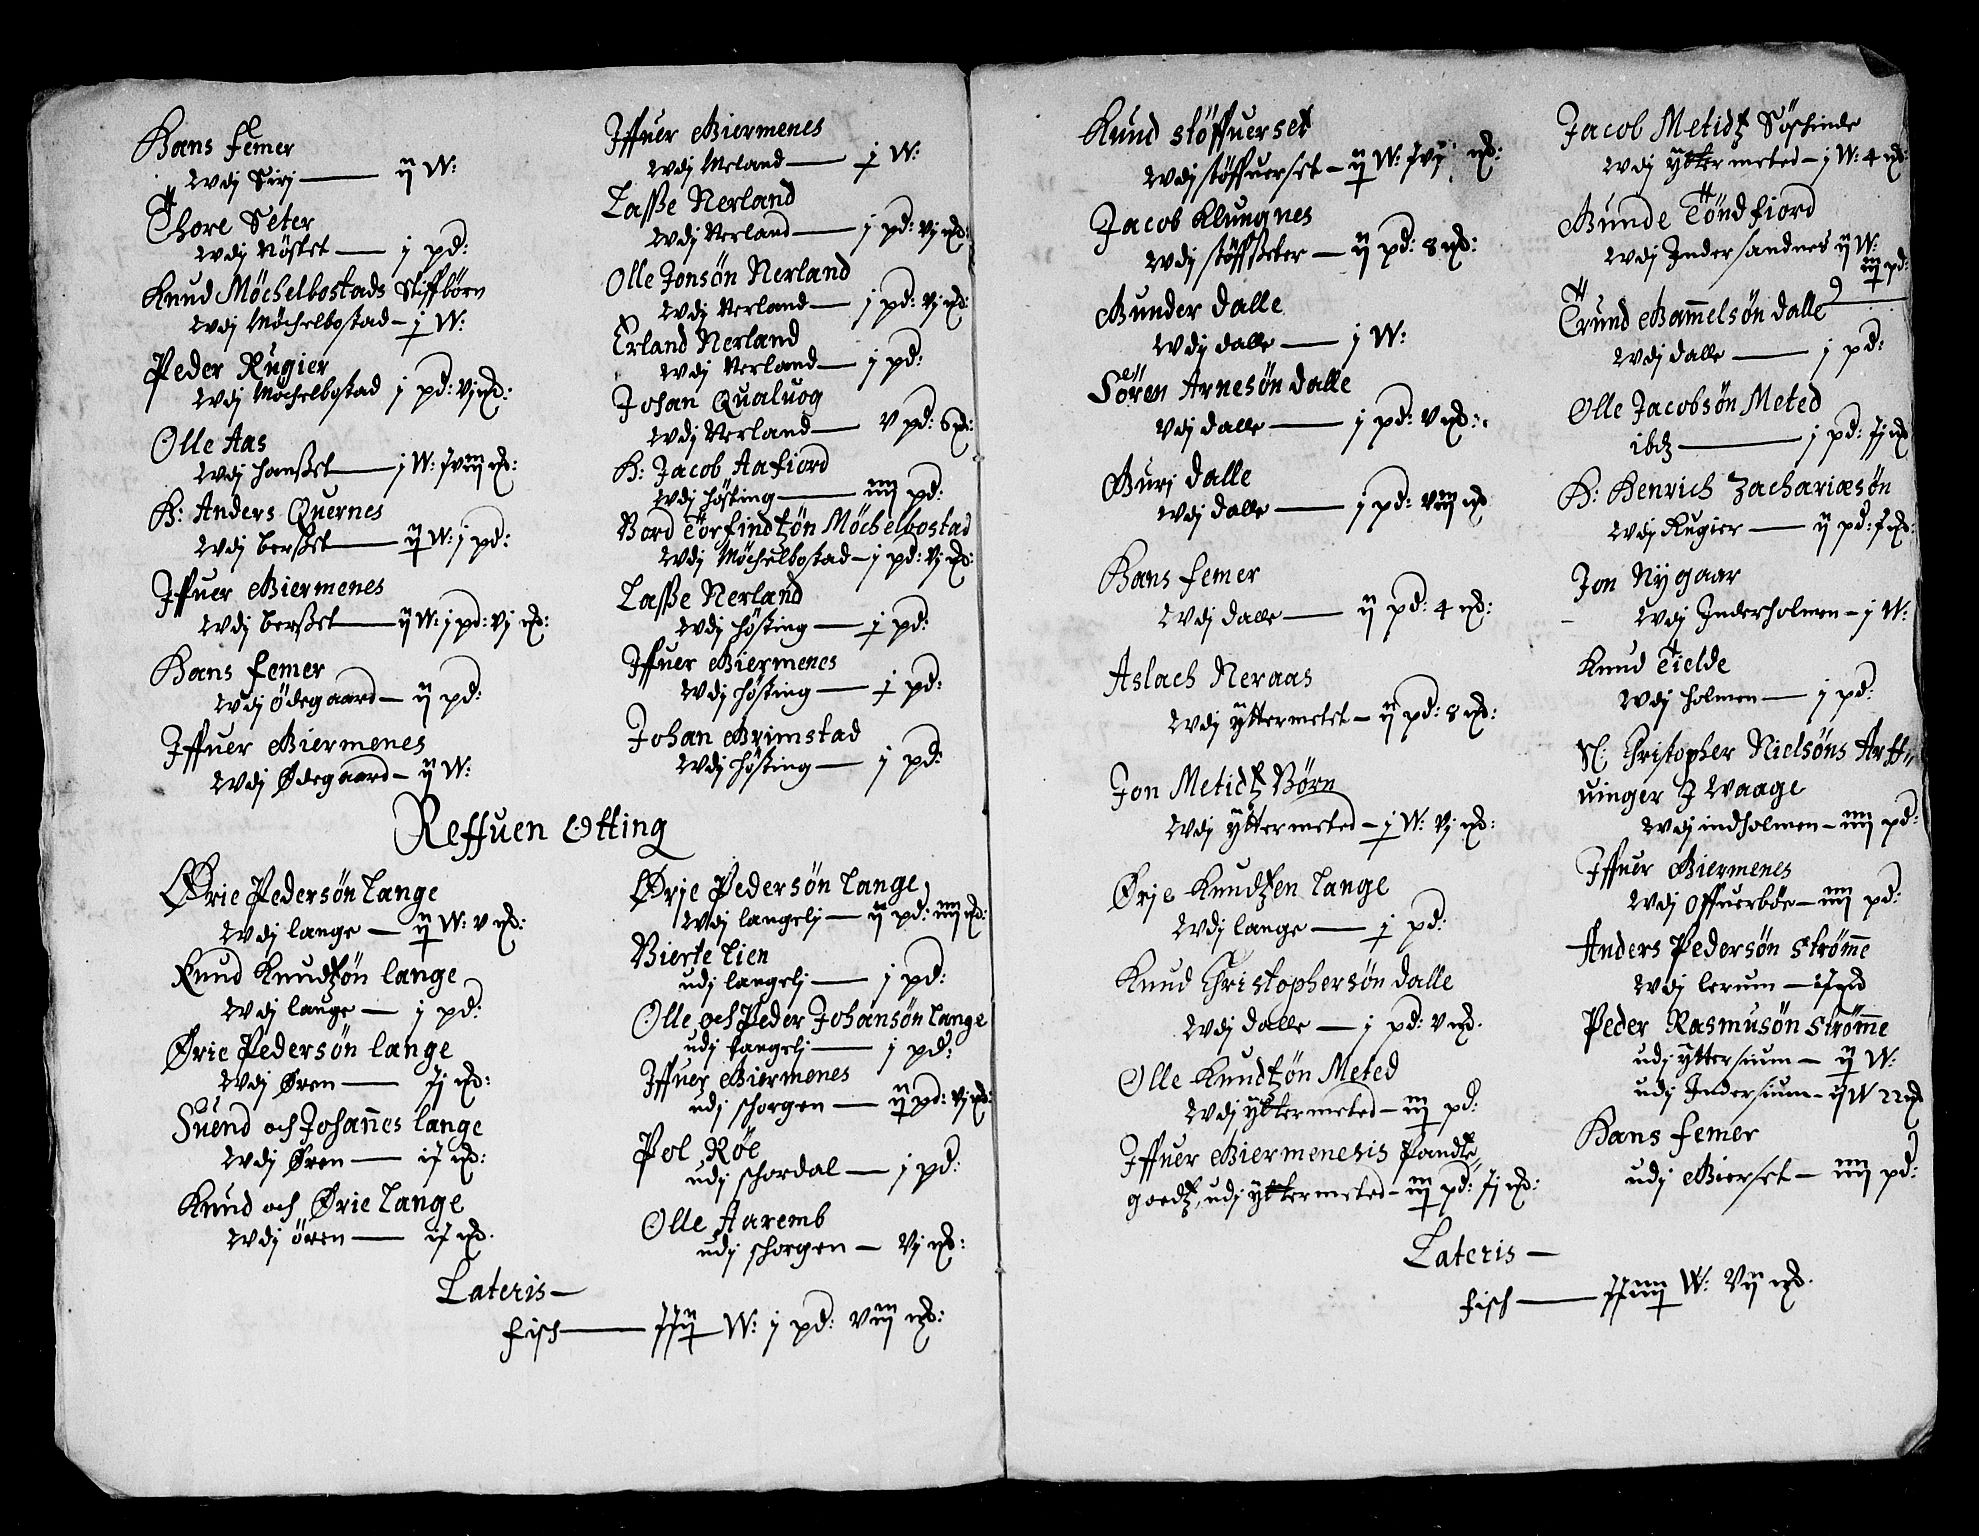 Hans Femer
Wdj Sirj — ij W:
Thore Seter
Wdj Nöstet — j pd:
Knud Möchelbostads Stiffbörn
Wdj Möchelbostad — j W:
Peder Rugier
Wdj Möchelbostad j pd: vj mk:
Olle Aas
Wdj hansset — j W: xviij mk:
H: Anders Quernes
Wdj bersset — ij W: j pd:
Iffuer Biermenes
Wdj bersset — ij W: j pd: vj mk:
Hans Femer
Wdj ödegaard — ij pd:
Iffuer Biermenes
Wdj Ødegaard — ij W:
Iffuer Biermenes
Wdj Meland — j W:
Lasse Nerland
Wdj Nerland — j pd: vj mk:
Olle Jonsön Nerland
Wdj Nerland — j pd: vj mk:
Erland Nerland
Wdj Nerland — j pd:
Johan Qualuog
Wdj Nerland — v pd: 6 mk:
H: Jacob Aafiord
Wdj hösting — iiij pd:
Bord Torfindtzön Möchelbostad
Wdj Möchelbostad — j pd: vj mk:
Lasse Nerland
Wdj hösting — j pd:
Iffuer Biermenes
Wdj hösting — j pd:
Johan Brimstad
Wdj hösting — j pd:
Reffuen Otting
Ørie Pedersön Lange
Wdj lange — ij W: v mk:
Knud Knudtzön lange
Wdj lange — j pd:
Ørie Pedersön lange
Wdj Øren — xj mk:
Suend och Johannes lange
Wdj Øren — ix mk:
Knud och Ørie Lange
Wdj ören — ix mk.
Ørje Pedersön Lange
Wdj langelj — ij pd: iiij mk:
Bierte Lien
udj langelj — j pd:
Olle och Peder Johansön Lange
udj langelj — j pd:
Iffuer Biermenes
udj schorgen — ij pd: vj mk:
Pol Röe
udj schordal — j pd:
Olle Aaremb
udj schorgen — vj mk:
Lateris —
Fisch — xxij W: j pd: viij mk:
Knud stöffuerset
Wdj stöffuerset — ij W: xvj mk:
Jacob Klungnes
Wdj stöffseter — ij pd: 8 mk:
Gunder Dalle
Wdj dalle — j W:
Sören Arnesön Dalle
Vdj Dalle — j pd: v mk:
Guri Dalle
Wdj Dalle — j pd: viij mk
Hans Femer
Wdj Dalle — ij pd: 4 mk:
Aslach Neraas
Wdj yttermetet — ij pd: 8 mk:
Jon Metidtz Börn
Wdj yttermeted — j W: vj mk:
Ørje Knudtzen Lange
Wdj lange — j pd:
Knud Christophersön Dalle
Wdj Dalle — j pd: v mk.
Olle Knudtzön Meted
Wdj yttermeted — iij pd:
Iffuer Biermenesis Pandte
goedtz, udj yttermeted — iij pd: xj mk:
Jacob Metidtz Söschinde
Wdj yttermeted — j W: 4 mk:
Gunde Töndfiord
Wdj Indersandnes ij W:
iij pd:
Trund Gammelsön Dalle
Wdj Dalle — j pd:
Olle Jacobsön Meted
ibd — j pd: xj mk
H: Henrich Zachariæsön
Wdj Rugier — ij pd: x mk:
Jon Nygaar
Wdj Inderholmen — j W:
Knud Tielde
Wdj holmen — j pd:
Sl: Christopher Nielsöns Arff-
uinger I Waage
Wdj indholmen — iiij pd:
Iffuer Biermenes
Wdj offuerböe — iiij pd:
Anders Pedersön Strömme
Wdj lerum — ix mk
Peder Rasmusön Strömme
udj yttersium — ij W:
udj Indersium — ij W 22 mk
Hans Femer
udj Bierset — iiij pd:
Lateris —
Fisch — xxiiij W: vij mk.